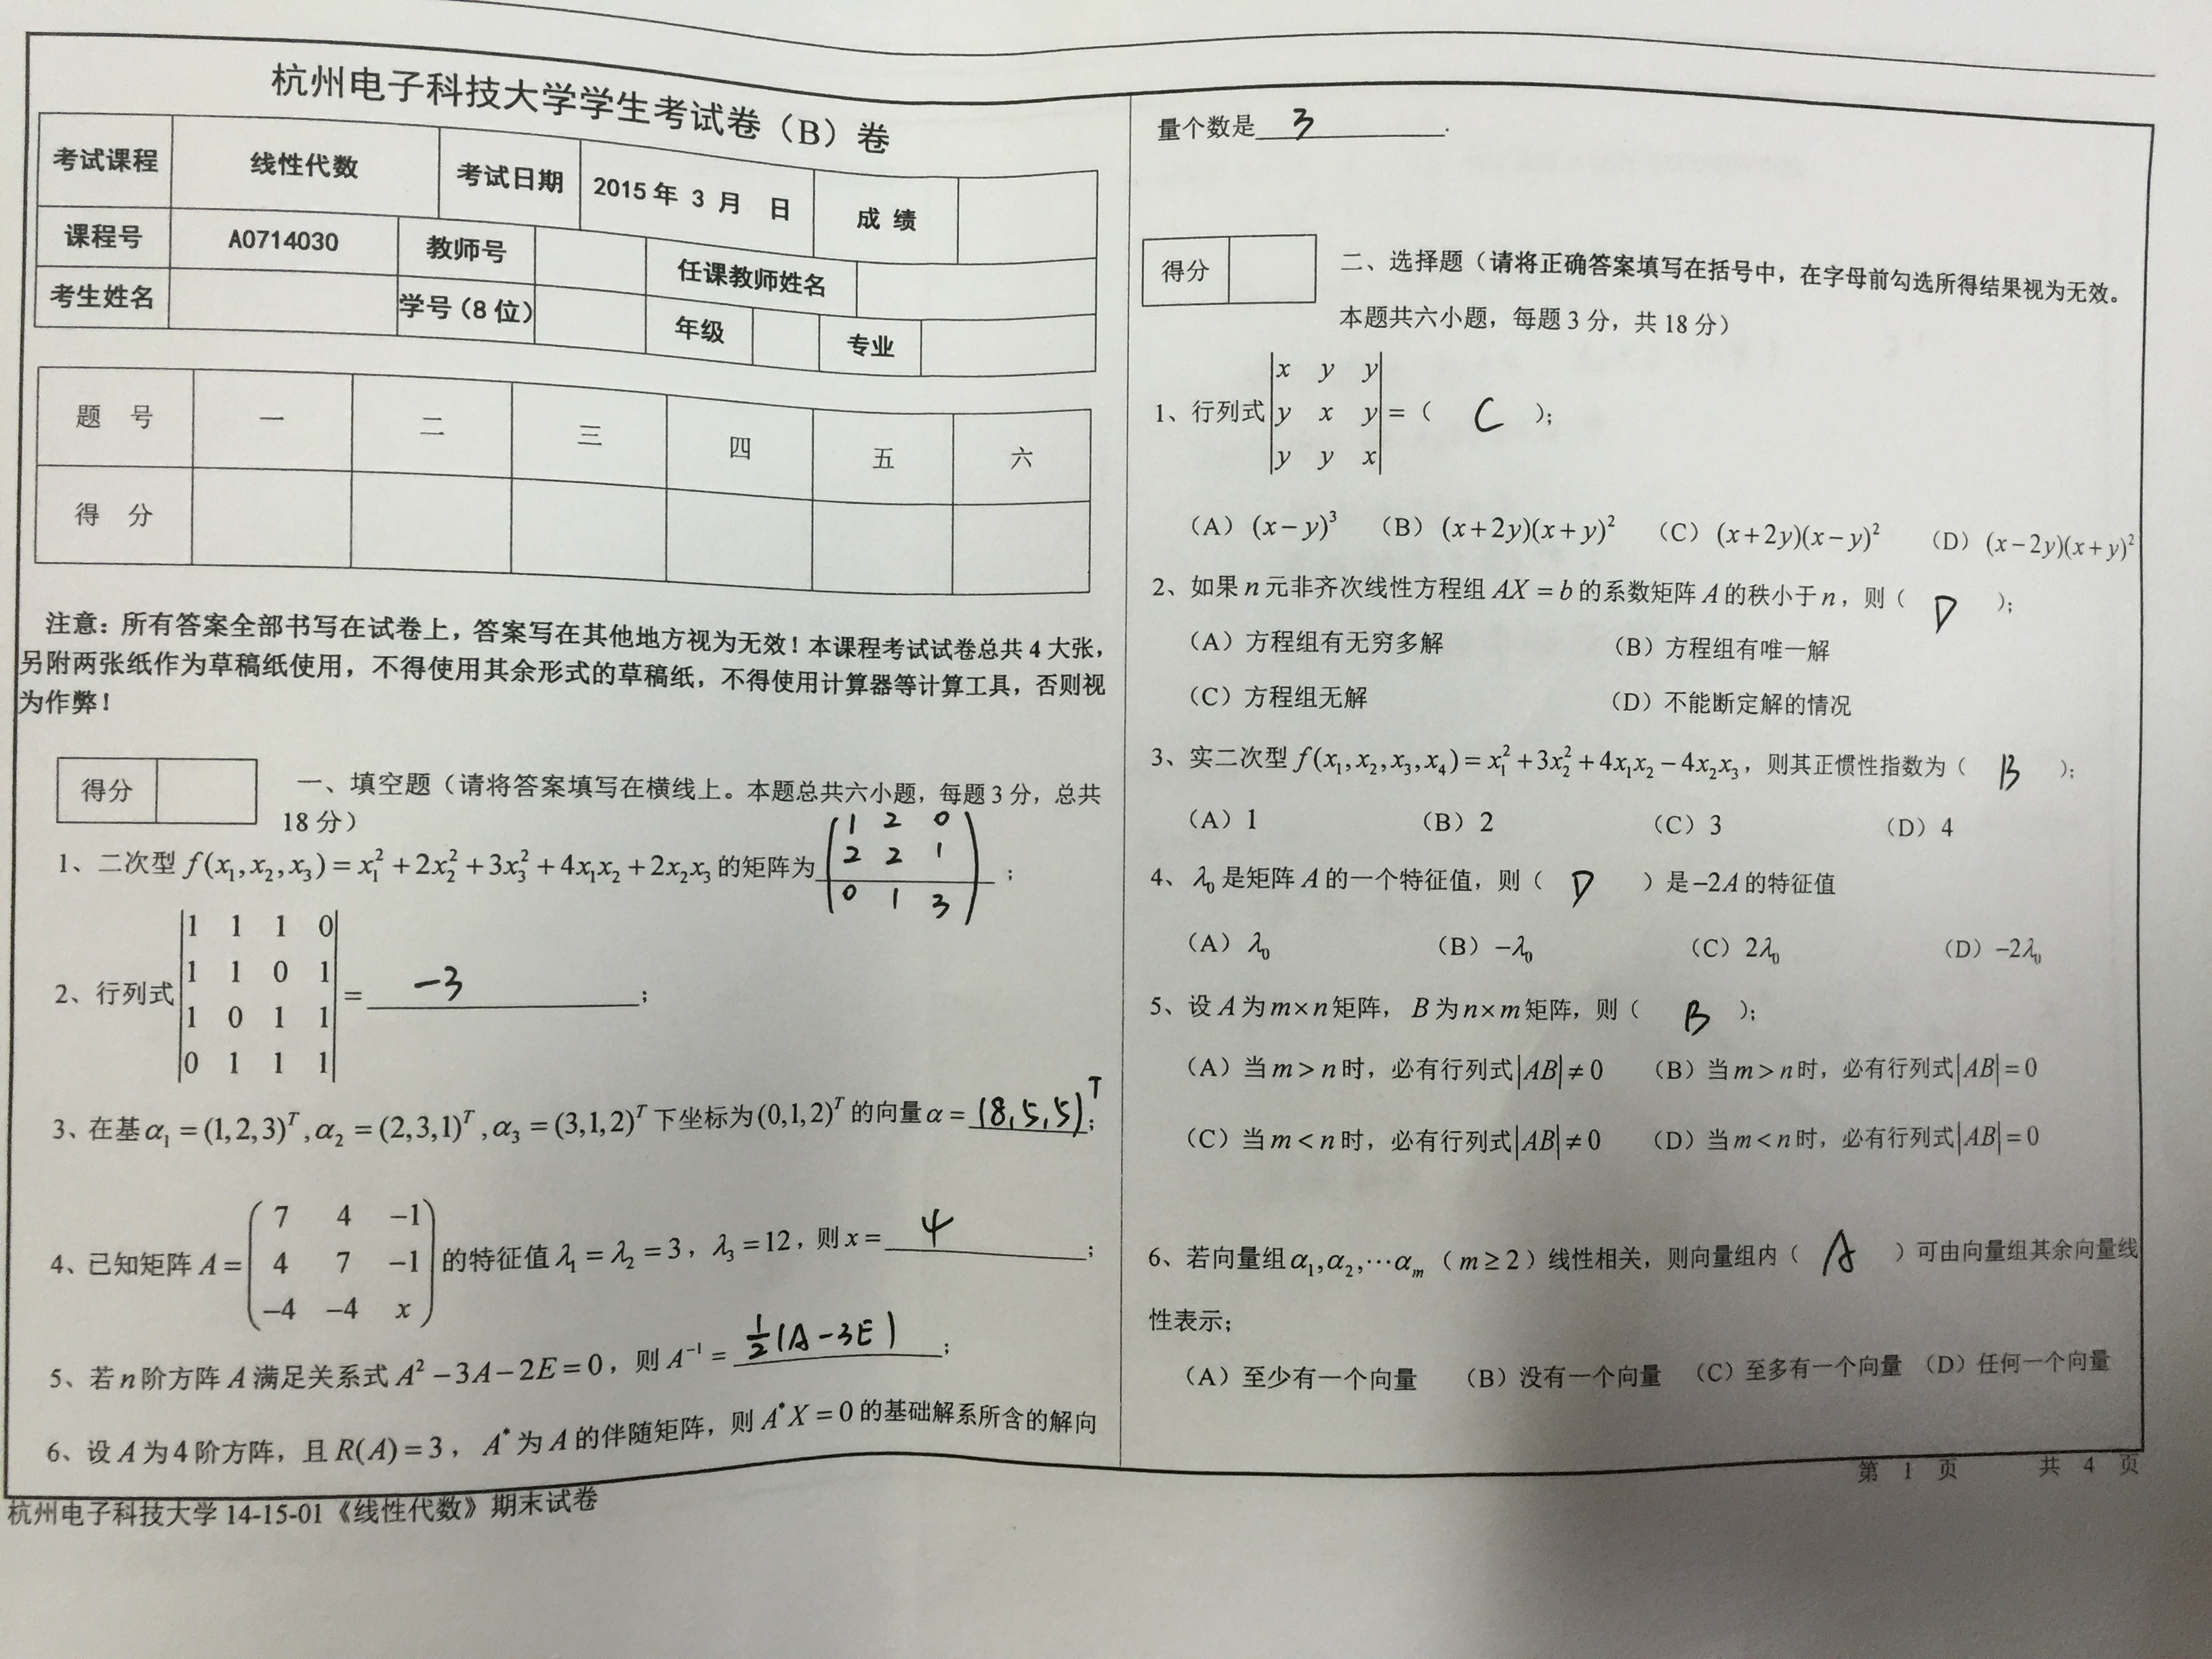 杭州电子科技大学学生考试卷（B）卷
考试课程 线性代数 考试日期 2015年 3 月 日 成 绩
课程号 A0714030 教师号 任课教师姓名
考生姓名 学号（8 位） 年级 专业
题 号 一 二 三 四 五 六
得 分
注意：所有答案全部书写在试卷上，答案写在其他地方视为无效！本课程考试试卷总共 4 大张，
另附两张纸作为草稿纸使用，不得使用其余形式的草稿纸，不得使用计算器等计算工具，否则视
为作弊！
得分
一、填空题（请将答案填写在横线上。本题总共六小题，每题 3 分，总共
18 分）
1、二次型 f(x₁,x₂,x₃) = x₁² + 2x₂² + 3x₃² + 4x₁x₂ + 2x₂x₃ 的矩阵为 ；
1 2 0
2 2 1
0 1 3
1 1 1 0
1 1 0 1
2、行列式 = -3 ；
1 0 1 1
0 1 1 1
3、在基 α₁ = (1,2,3)ᵀ, α₂ = (2,3,1)ᵀ, α₃ = (3,1,2)ᵀ 下坐标为 (0,1,2)ᵀ 的向量 α = (8,5,5)ᵀ ；
7 4 −1
4、已知矩阵 A = 4 7 −1 的特征值 λ₁ = λ₂ = 3，λ₃ = 12，则 x = 4 ；
−4 −4 x
5、若 n 阶方阵 A 满足关系式 A² − 3A − 2E = 0，则 A⁻¹ = ½(A-3E) ；
6、设 A 为 4 阶方阵，且 R(A) = 3，A* 为 A 的伴随矩阵，则 A*X = 0 的基础解系所含的解向
杭州电子科技大学 14-15-01《线性代数》期末试卷
量个数是 3 .
得分
二、选择题（请将正确答案填写在括号中，在字母前勾选所得结果视为无效。
本题共六小题，每题 3 分，共 18 分）
x y y
1、行列式 y x y = （ C ）；
y y x
（A）(x − y)³ （B）(x + 2y)(x + y)² （C）(x + 2y)(x − y)² （D）(x − 2y)(x + y)²
2、如果 n 元非齐次线性方程组 AX = b 的系数矩阵 A 的秩小于 n，则（ D ）；
（A）方程组有无穷多解 （B）方程组有唯一解
（C）方程组无解 （D）不能断定解的情况
3、实二次型 f(x₁,x₂,x₃,x₄) = x₁² + 3x₂² + 4x₁x₂ − 4x₂x₃，则其正惯性指数为（ B ）；
（A）1 （B）2 （C）3 （D）4
4、λ₀ 是矩阵 A 的一个特征值，则（ D ）是 −2A 的特征值
（A）λ₀ （B）−λ₀ （C）2λ₀ （D）−2λ₀
5、设 A 为 m×n 矩阵，B 为 n×m 矩阵，则（ B ）；
（A）当 m > n 时，必有行列式|AB| ≠ 0 （B）当 m > n 时，必有行列式|AB| = 0
（C）当 m < n 时，必有行列式|AB| ≠ 0 （D）当 m < n 时，必有行列式|AB| = 0
6、若向量组 α₁,α₂,⋯αₘ（m ≥ 2）线性相关，则向量组内（ A ）可由向量组其余向量线
性表示；
（A）至少有一个向量 （B）没有一个向量 （C）至多有一个向量 （D）任何一个向量
第 1 页 共 4 页